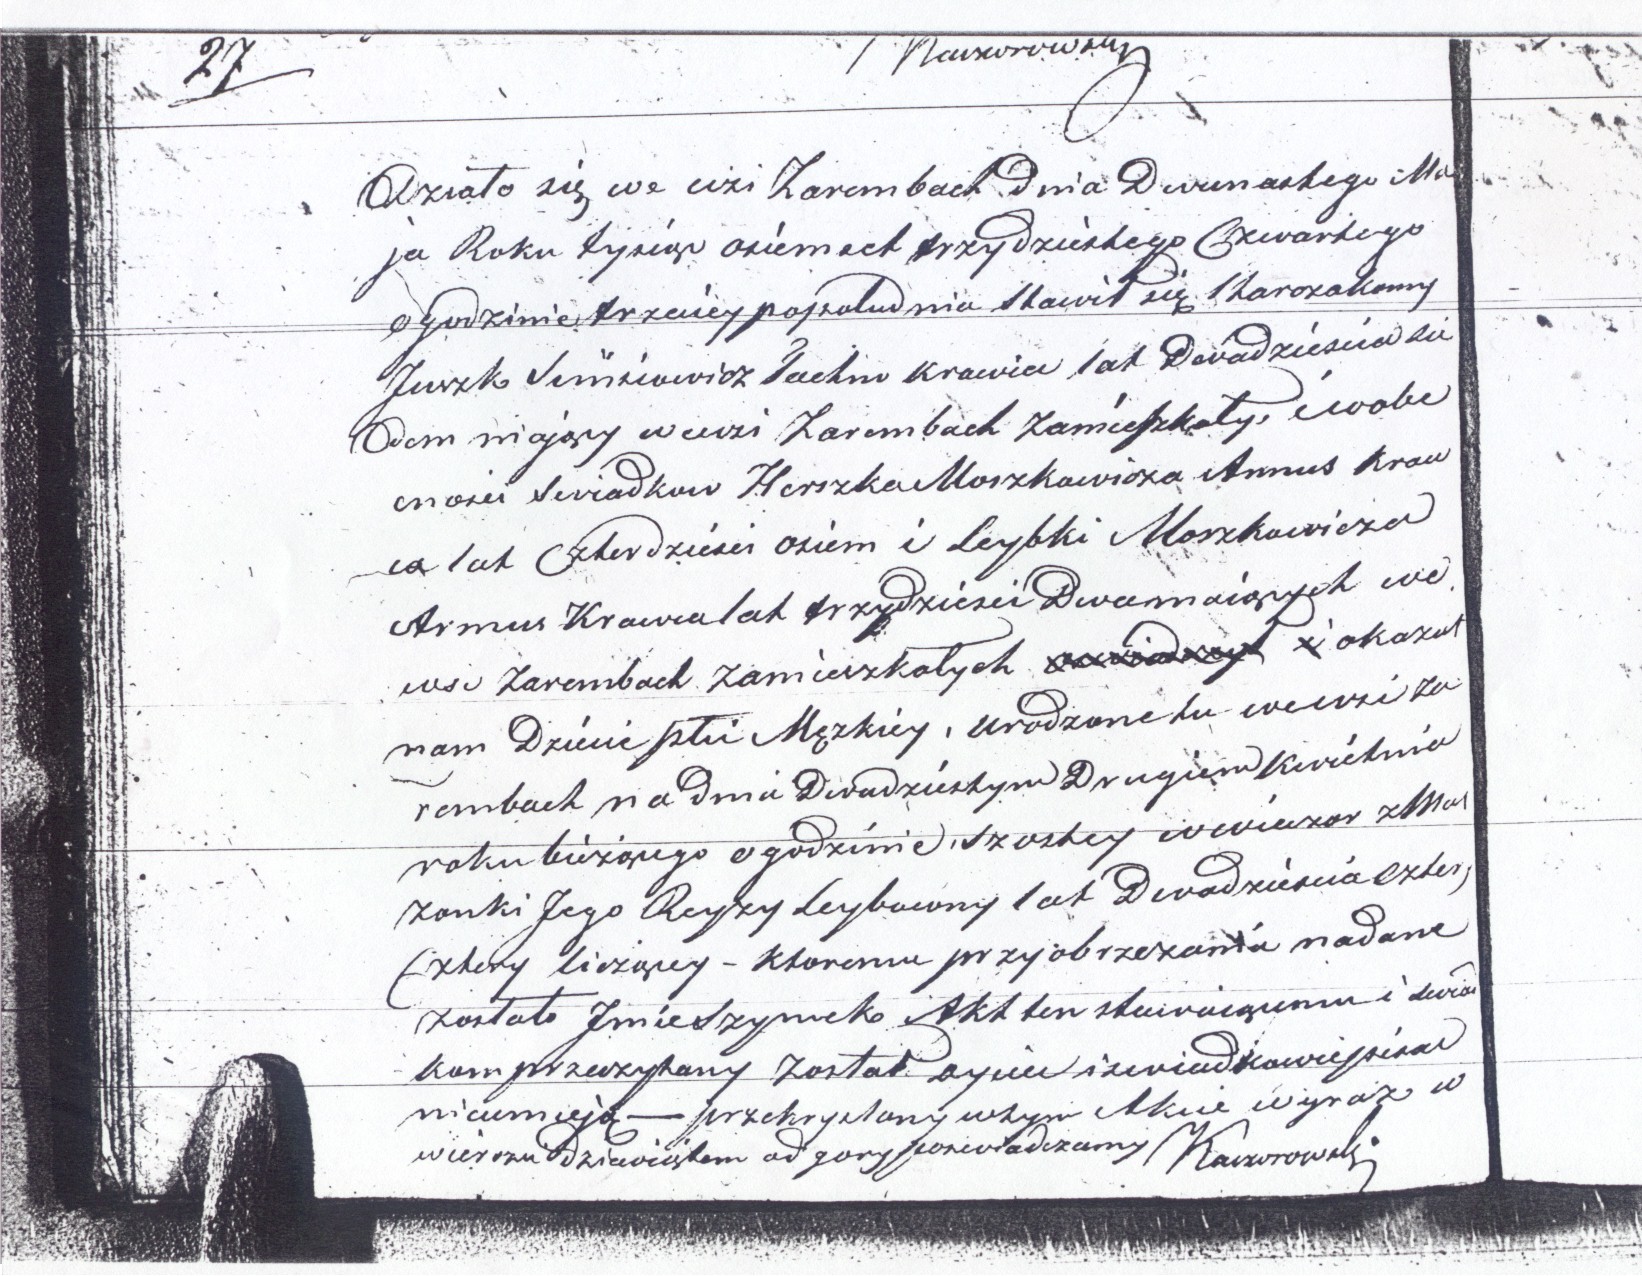 27
Kaczorowski
Działo się we wsi Zarembach dnia Dwunastego Ma
ja Roku tysiąc osiemset trzydziestego Czwartego
o godzinie trzeciey popołudniu stawił się starozakonny
Juszk Tachno krawiec lat Dwadzieścia sie
dem maiący we wsi Zarembach zamieszkały, i w obe
cności swiadkow Herszka Moszkowicza Armus kraw
ca lat Czterdzieści osiem i Leybki Moszkowicza
Armus Krawca lat trzydzieści Dwa maiących we
wsi Zarembach zamieszkałych i okazał
nam Dziecie płci Męzkiey, urodzone tu we wsi Za
rembach na dniu Dwudziestym Drugiem kwietnia
roku bieżącego o godzinie szostey w wieczor z Mał
zonki Jego Reyzy Leybowny lat Dwadzieścia cztery
Cztery liczącey – ktoremu przy obrzezaniu nadane
zostało Jmie Szymek Akt ten stawaiącemu i swiad
kom przeczytany został oyciec i swiadkowie pisać
nieumieją — przekryslany w tym Akcie wyraz w
wierszu dziewiątem od gory poswiadczamy Kaczorowski